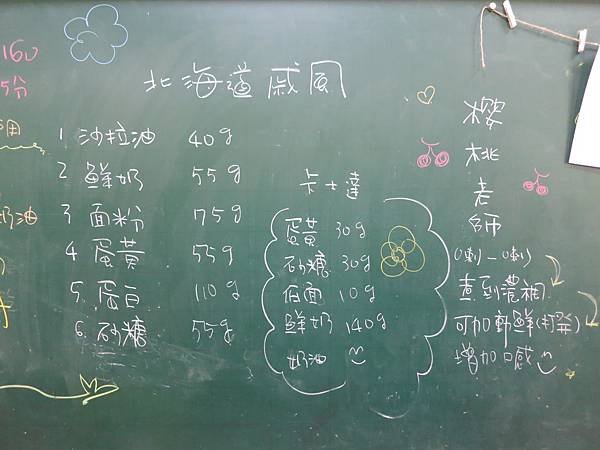 160
5分
用
奶油
北海道戚風
1 沙拉油 40g
2 鮮奶 55g
3 面粉 75g
4. 蛋黃 55g
5. 蛋白 110g
6. 砂糖 55g
卡士達
蛋黃 30g
砂糖 30g
低面 10g
鮮奶 140g
奶油
櫻桃老師
查到農糧
可加新鮮(檸)
增加口感